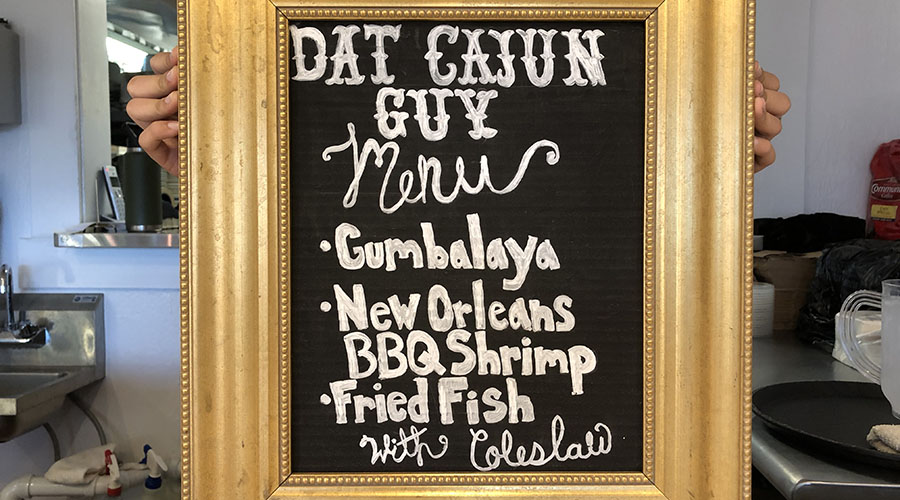 DAT CAJUN
GUY
Menu
• Gumbalaya
• New Orleans
BBQ Shrimp
• Fried Fish
with Coleslaw